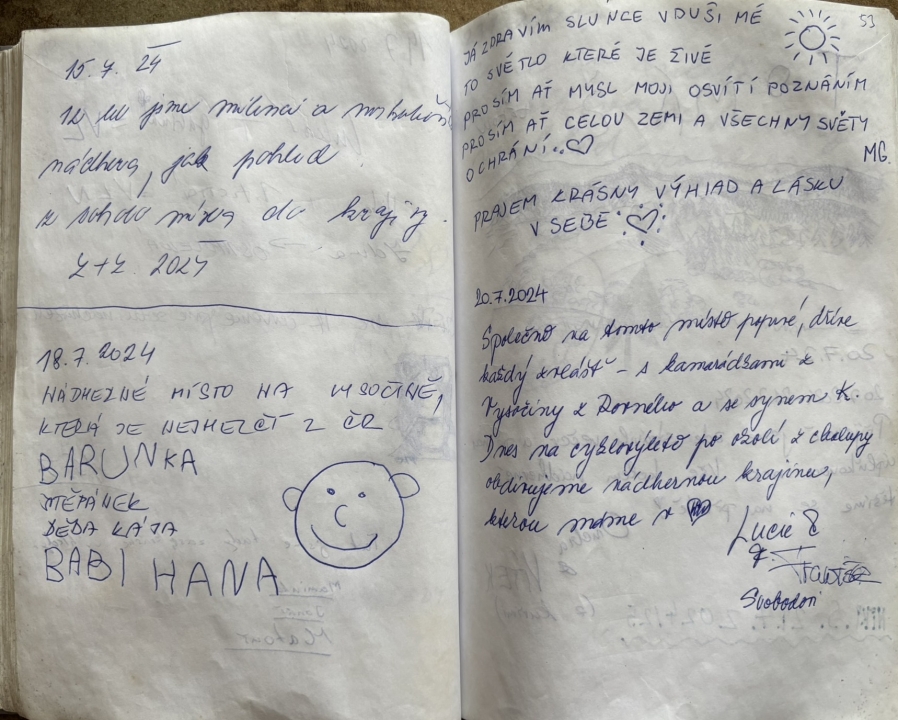 15. 7. 24
jsme milenci a
nádhera, jak pohled
z do krajiny.
Z+Z. 2024
18.7.2024
NÁDHERNÉ MÍSTO NA VYSOČINĚ,
KTERÁ JE NEJHEZČÍ Z ČR
BARUNKA
ŠTĚPÁNEK
DĚDA KÁJA
BABI HANA
53
JÁ ZDRAVÍM SLUNCE V DUŠI MÉ
TO SVĚTLO KTERÉ JE ŽIVÉ
PROSÍM AŤ MYSL MOJI OSVÍTÍ POZNÁNÍM
PROSÍM AŤ CELOU ZEMI A VŠECHNY SVĚTY
OCHRÁNÍ..
MG.
PRAJEM KRÁSNY VÝHIAD A LÁSKU
V SEBE
20.7.2024
Společně na tomto místě poprvé, dříve
každý zvlášť - s kamarádkami z
Vysočiny z Horního a se synem K.
Dnes na cyklovýletě po okolí z chalupy
obdivujeme nádhernou krajinu,
kterou máme v
Lucie
František
Svobodovi